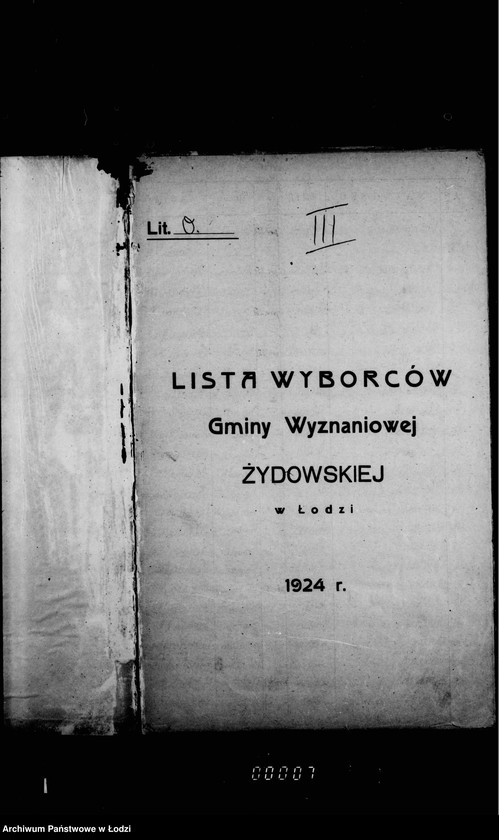 Lit. O.
III
LISTA WYBORCÓW
Gminy Wyznaniowej
ŻYDOWSKIEJ
w Łodzi
1924 r.
00007
Archiwum Państwowe w Łodzi